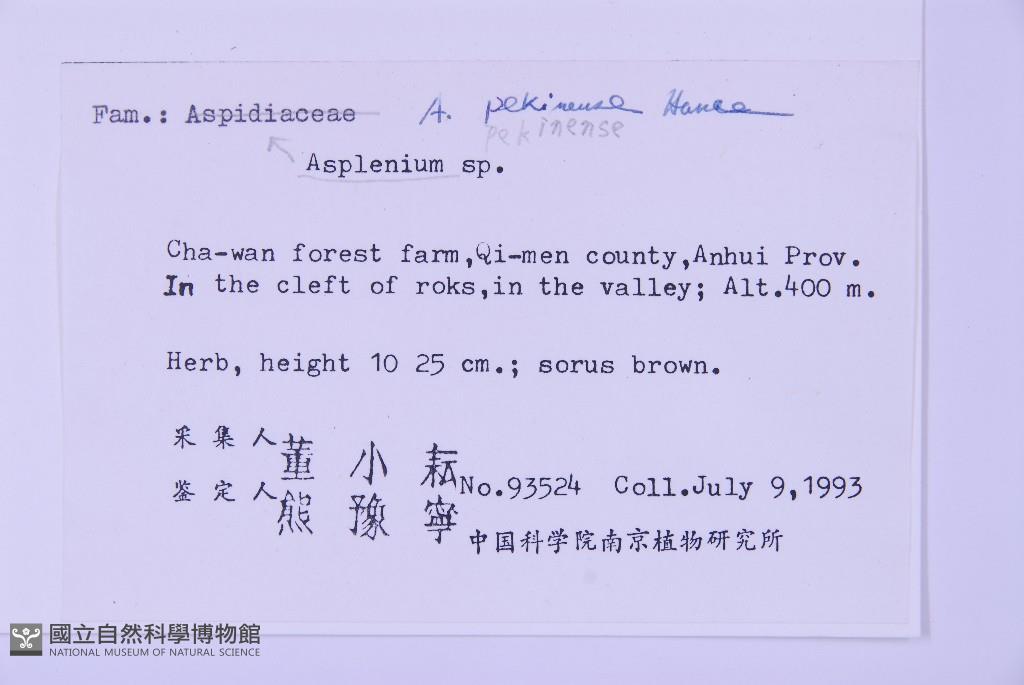 Fam.: Aspidiaceae A. pekinense Hance
pekinense
Asplenium sp.
Cha-wan forest farm,Qi-men county,Anhui Prov.
In the cleft of roks,in the valley; Alt.400 m.
Herb, height 10 25 cm.; sorus brown.
采集人 董小耘
鉴定人 熊豫寧 No.93524 Coll.July 9,1993
中国科学院南京植物研究所
國立自然科學博物館
NATIONAL MUSEUM OF NATURAL SCIENCE